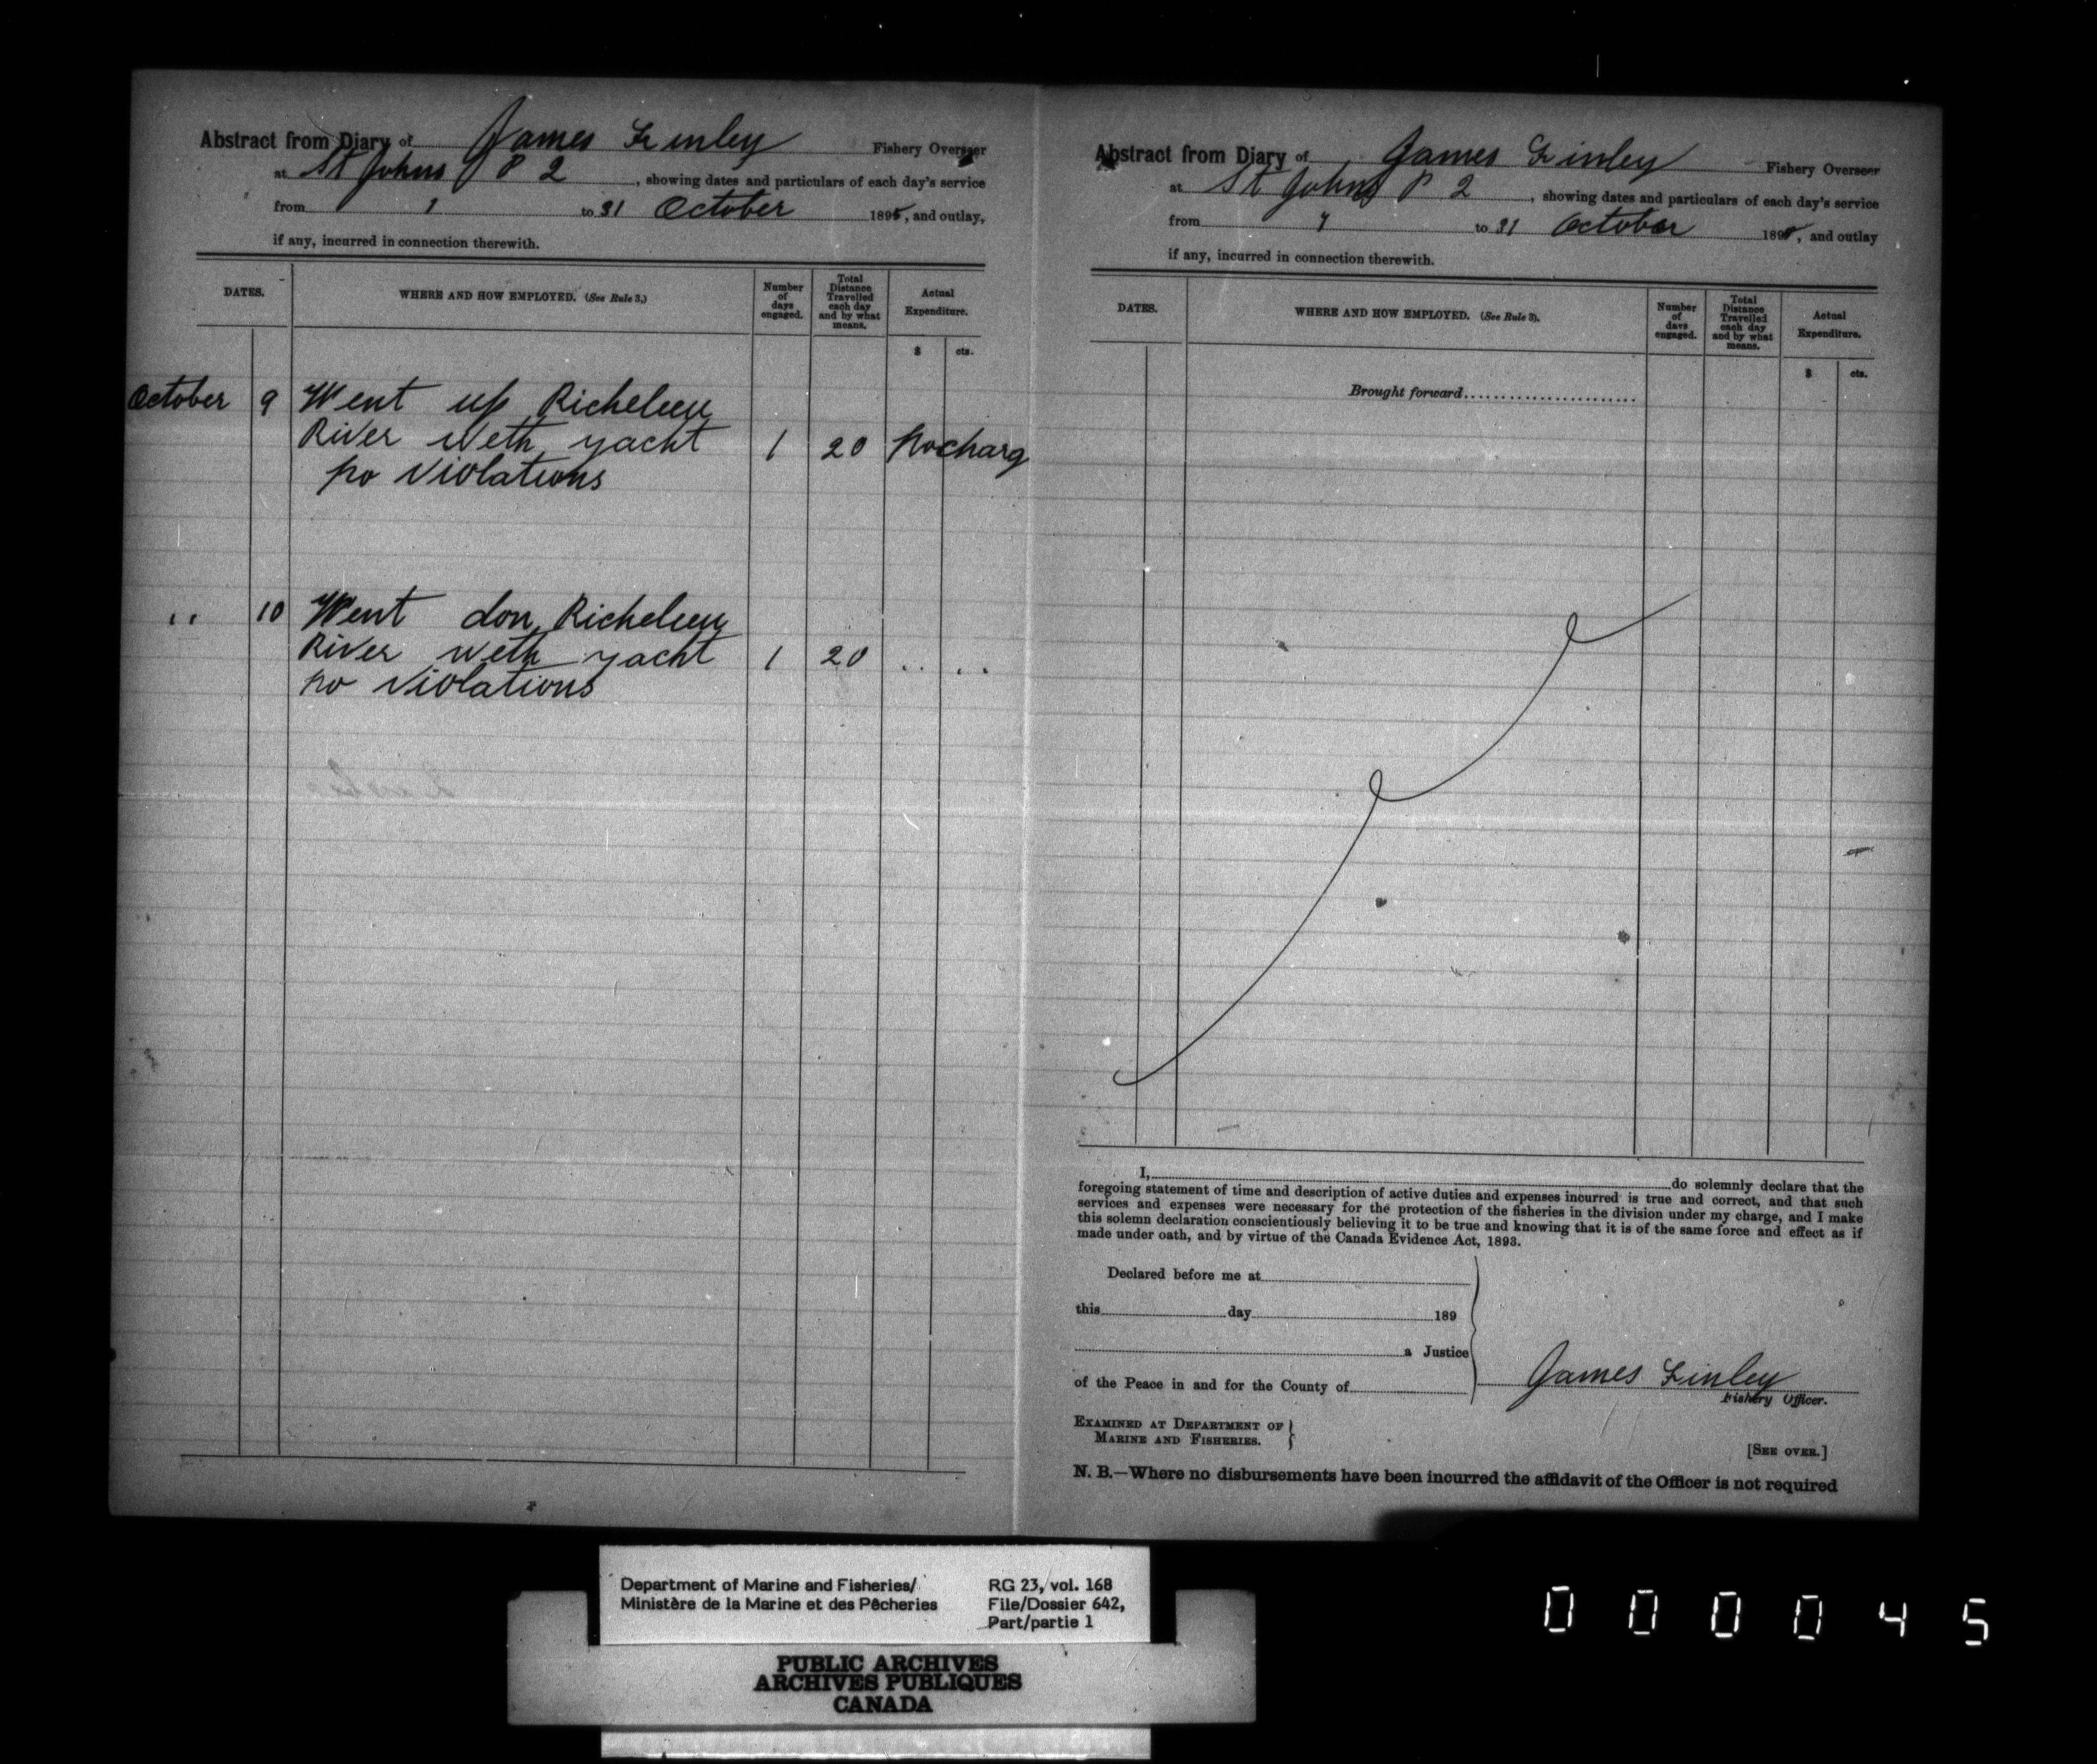 Abstract from Diary of James Finley Fishery Overseer
at St Johns P 2, showing dates and particulars of each day's service
from 1 to 31 October 1895, and outlay,
if any, incurred in connection therewith.
DATES.
WHERE AND HOW EMPLOYED. (See Rule 3.)
Number of days engaged.
Total Distance Travelled each day and by what means.
Actual Expenditure.
$ cts.
October 9 Went up Richeleeu
River weth yacht 1 20 no charg
no violations
" 10 Went don Richeleeu
River weth yacht 1 20 " "
no violations
Abstract from Diary of James Finley Fishery Overseer
at St Johns P 2, showing dates and particulars of each day's service
from to 31 October 189 , and outlay
if any, incurred in connection therewith.
DATES.
WHERE AND HOW EMPLOYED. (See Rule 3).
Number of days engaged.
Total Distance Travelled each day and by what means.
Actual Expenditure.
$ cts.
Brought forward
I, do solemnly declare that the
foregoing statement of time and description of active duties and expenses incurred is true and correct, and that such
services and expenses were necessary for the protection of the fisheries in the division under my charge, and I make
this solemn declaration conscientiously believing it to be true and knowing that it is of the same force and effect as if
made under oath, and by virtue of the Canada Evidence Act, 1893.
Declared before me at
this day 189
a Justice
of the Peace in and for the County of
James Finley
Fishery Officer.
EXAMINED AT DEPARTMENT OF
MARINE AND FISHERIES.
[SEE OVER.]
N. B.—Where no disbursements have been incurred the affidavit of the Officer is not required
Department of Marine and Fisheries/
Ministère de la Marine et des Pêcheries
RG 23, vol. 168
File/Dossier 642,
Part/partie 1
PUBLIC ARCHIVES
ARCHIVES PUBLIQUES
CANADA
000045